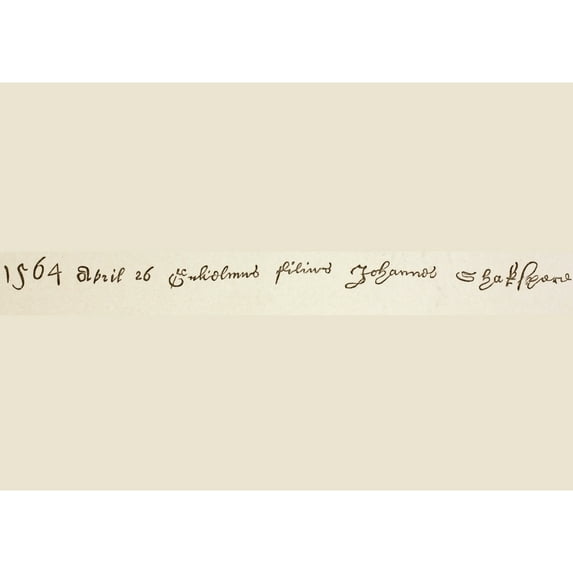 1564 April 26 Gulielmus filius Johannes Shakspere